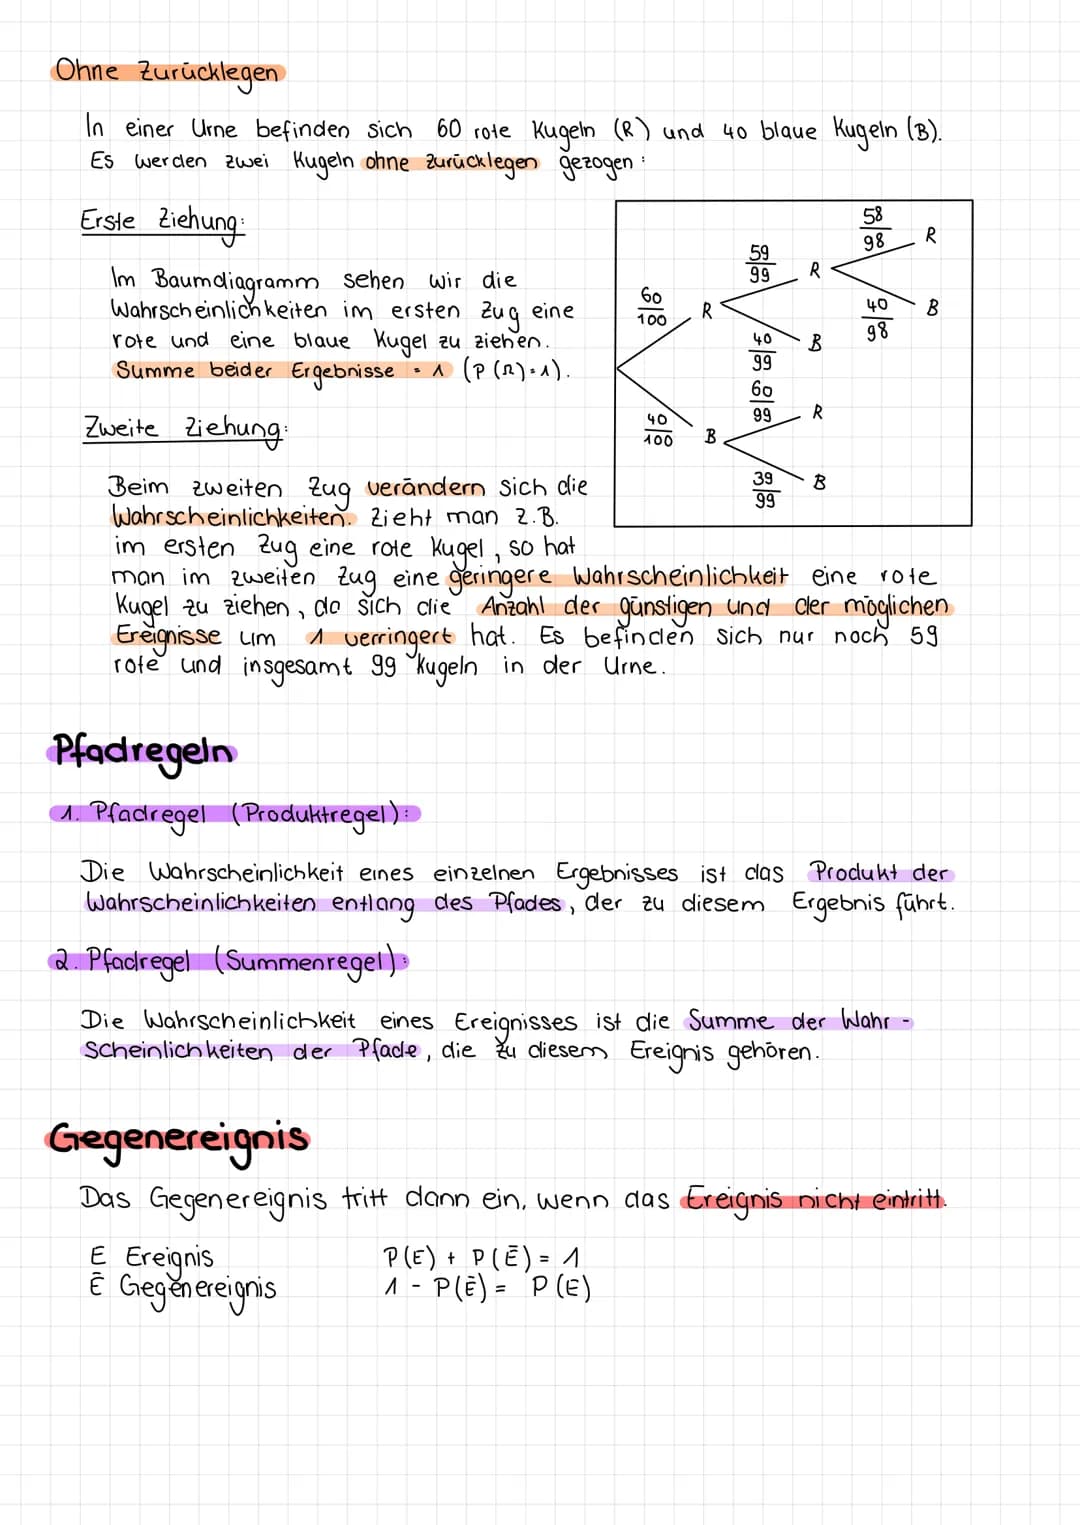 Ohne Zurücklegen
In einer Urne befinden sich 60 rote Kugeln (R) und 40 blaue Kugeln (B).
Es werden zwei Kugeln ohne zurücklegen gezogen:
Erste Ziehung:
Im Baumdiagramm sehen wir die
Wahrscheinlichkeiten im ersten Zug eine
rote und eine blaue Kugel zu ziehen.
Summe beider Ergebnisse = 1 (P(Ω)=1).
60/100 R
59/99 R
58/98 R
40/98 B
40/99 B
40/100 B
60/99 R
39/99 B
Zweite Ziehung:
Beim zweiten Zug verändern sich die
Wahrscheinlichkeiten. Zieht man z.B.
im ersten Zug eine rote Kugel, so hat
man im zweiten Zug eine geringere Wahrscheinlichkeit eine rote
Kugel zu ziehen, da sich die Anzahl der günstigen und der möglichen
Ereignisse um 1 verringert hat. Es befinden sich nur noch 59
rote und insgesamt 99 Kugeln in der Urne.
Pfadregeln
1. Pfadregel (Produktregel):
Die Wahrscheinlichkeit eines einzelnen Ergebnisses ist das Produkt der
Wahrscheinlichkeiten entlang des Pfades, der zu diesem Ergebnis führt.
2. Pfadregel (Summenregel):
Die Wahrscheinlichkeit eines Ereignisses ist die Summe der Wahr-
scheinlichkeiten der Pfade, die zu diesem Ereignis gehören.
Gegenereignis
Das Gegenereignis tritt dann ein, wenn das Ereignis nicht eintritt.
E Ereignis P(E) + P(Ē) = 1
Ē Gegenereignis 1 - P(Ē) = P(E)